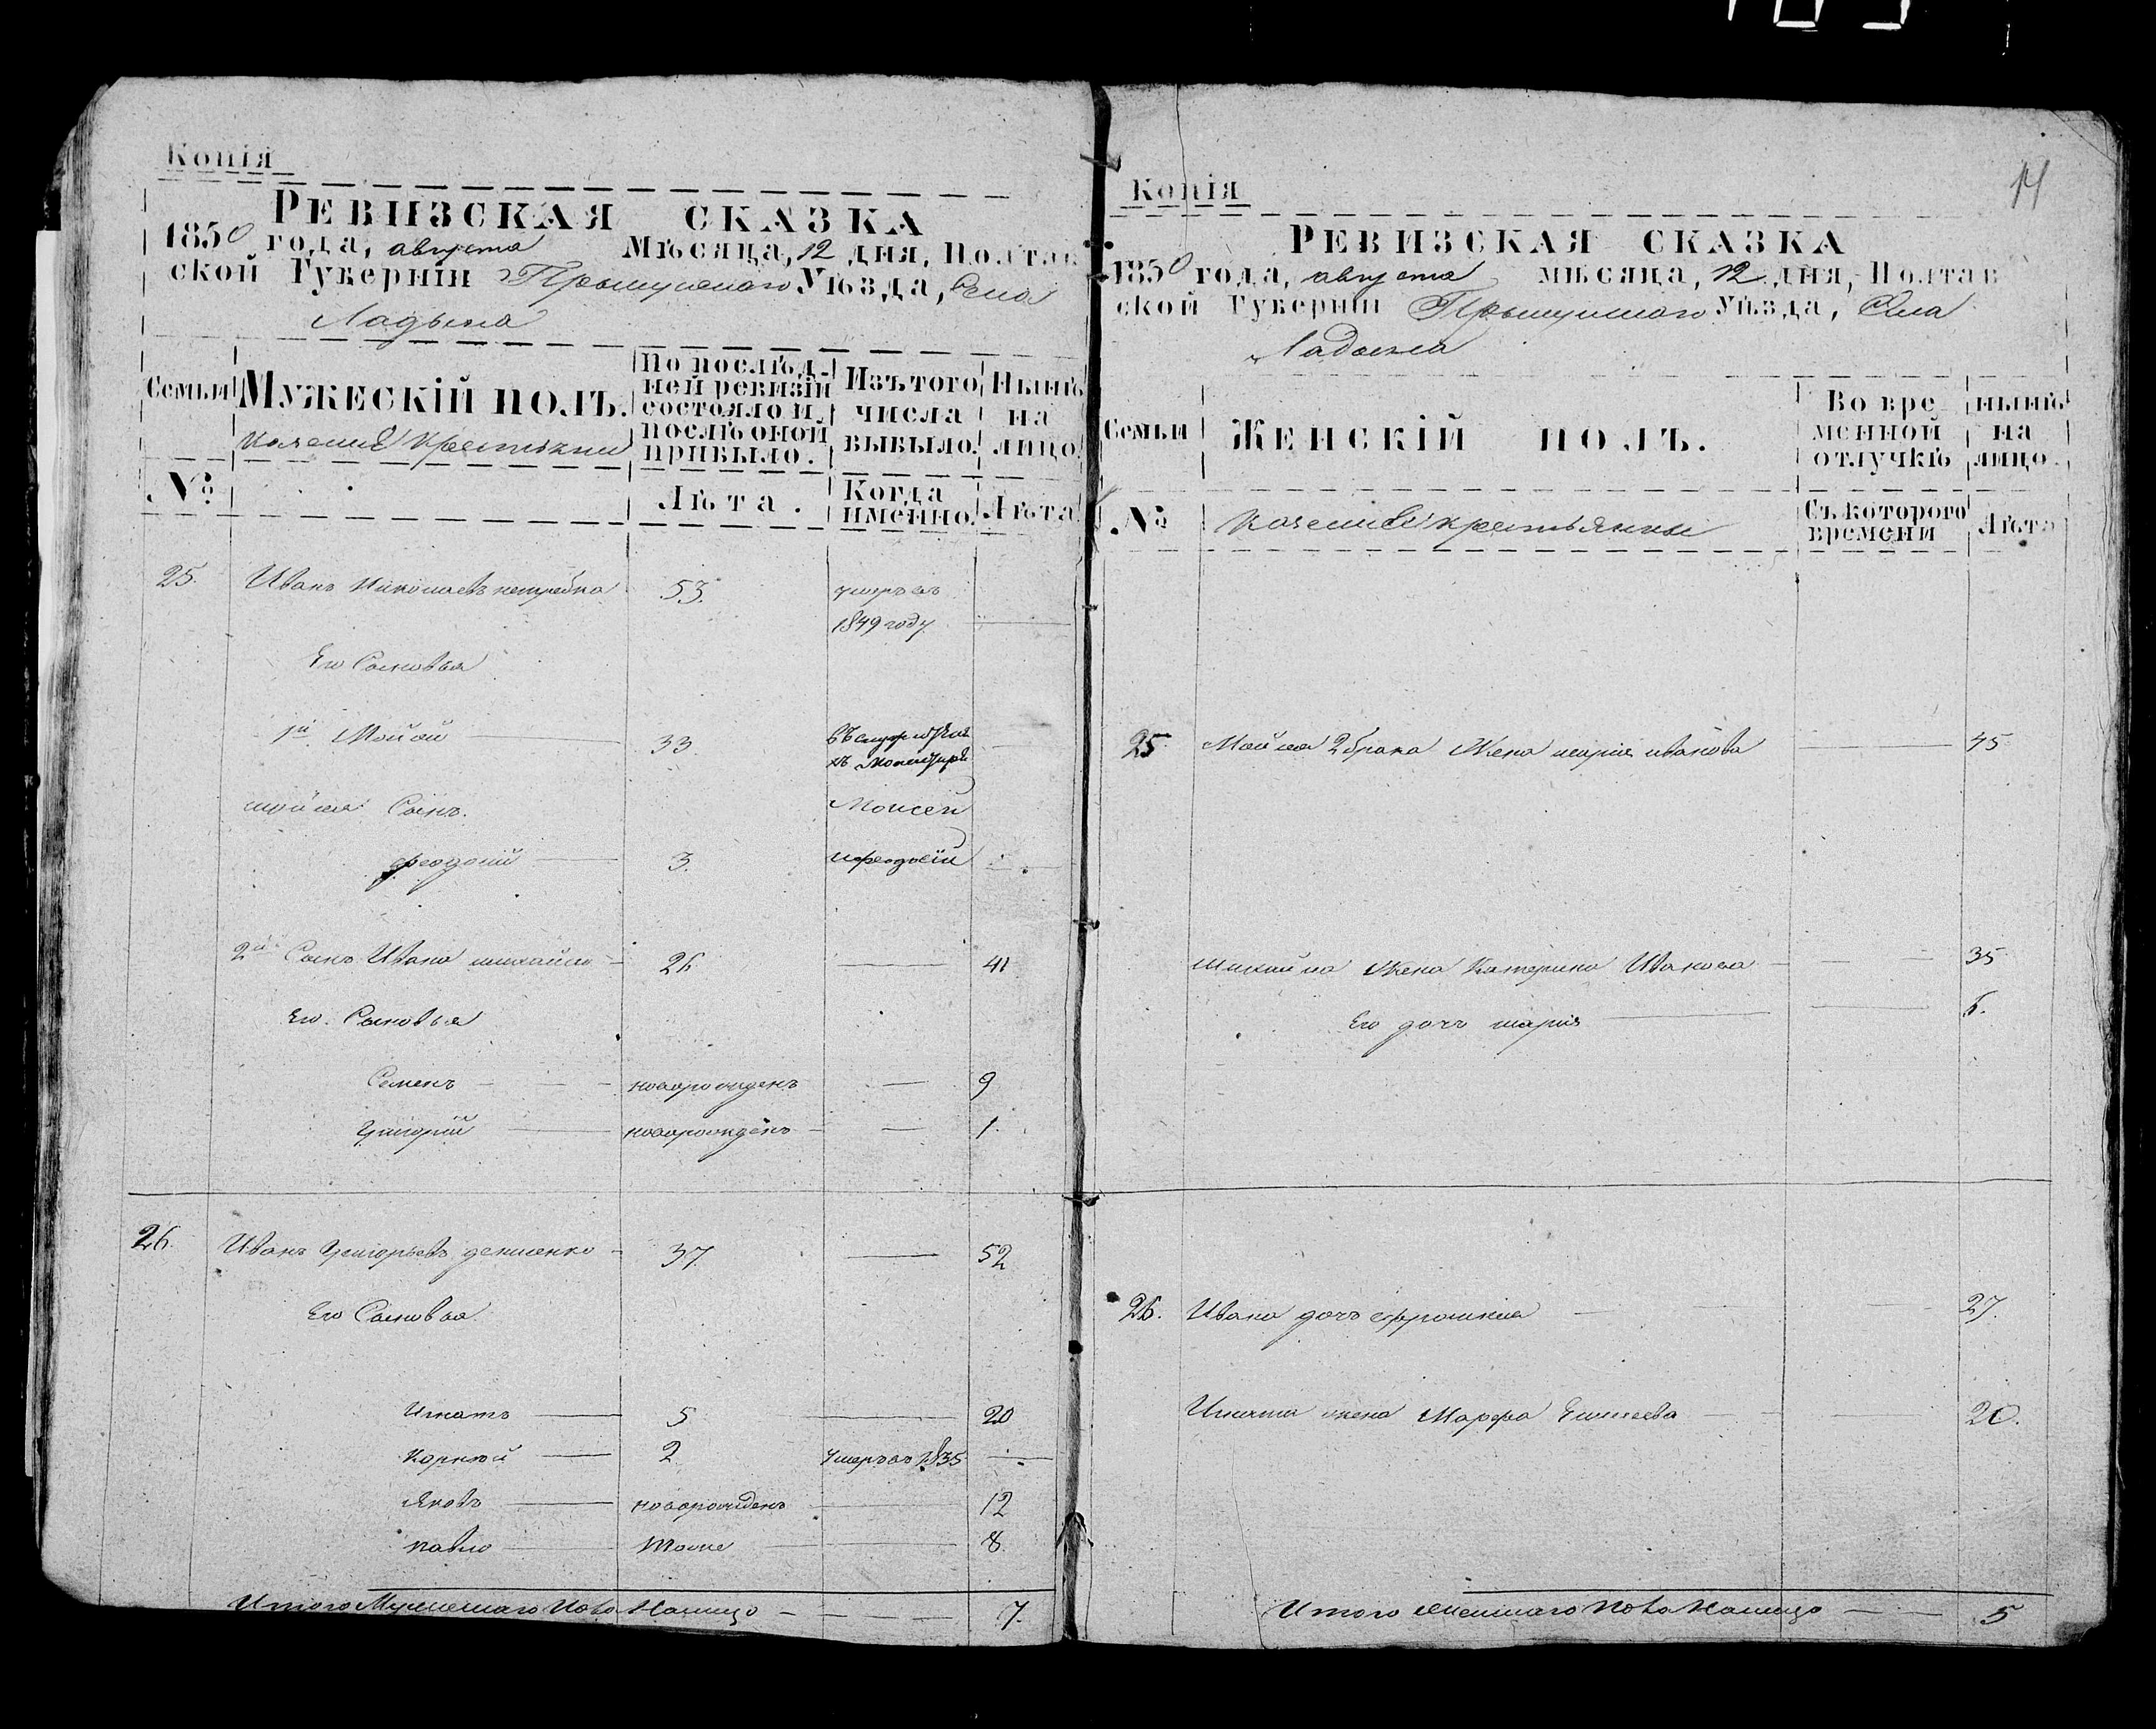 Копія
РЕВИЗСКАЯ СКАЗКА
1850 года, августа Мѣсяца, 12 дня, Полтав
ской Губерніи Прылуцкаго Уѣзда, Села
Ладына
Семьи
МУЖЕСКІЙ ПОЛЪ.
казенные крестьяни
По послѣд-
ней ревизіи
состояло и
послѣ оной
прибыло.
Изъ того
числа
выбыло.
Нынѣ
на
лицо
№
Лѣта.
Когда
именно.
Лѣта
25. Иванъ Николаевъ 53. умръ въ
1849 году
Его Сыновья
1й Мойсей 33
Мойсея Сынъ. Моисей
Феодосій 3. и Феодосій
2й Сынъ Ивана михайло 26 41
Его Сыновья
Семенъ новорожденъ 9
Григорій новорожденъ 1.
26. Иванъ Григорьевъ денисенко 37. 52
Его Сыновья
Игнатъ 5 20
Корнѣй 2 Умеръ въ 1835
Яковъ новорожденъ 12
павло Тоже 8.
Итого Мужескаго Пола На лицо 7.
14
Копія
РЕВИЗСКАЯ СКАЗКА
1850 года, августа мѣсяца, 12 дня, Полтав
ской Губерніи Прылуцкаго Уѣзда, Села
Ладына
Семьи
ЖЕНСКІЙ ПОЛЪ.
Во вре
менной
отлучкѣ
нынѣ
на
лицо.
№
казенные крестьянки
Съ котораго
времени
Лѣта
25 Мойсея 2 брака Жена марія иванова 45
михайла Жена Катерина Иванова 35
Его дочь марія 6.
26. Ивана дочь 27.
Игната жена Марфа 20.
Итого женскаго Пола На лицо 5